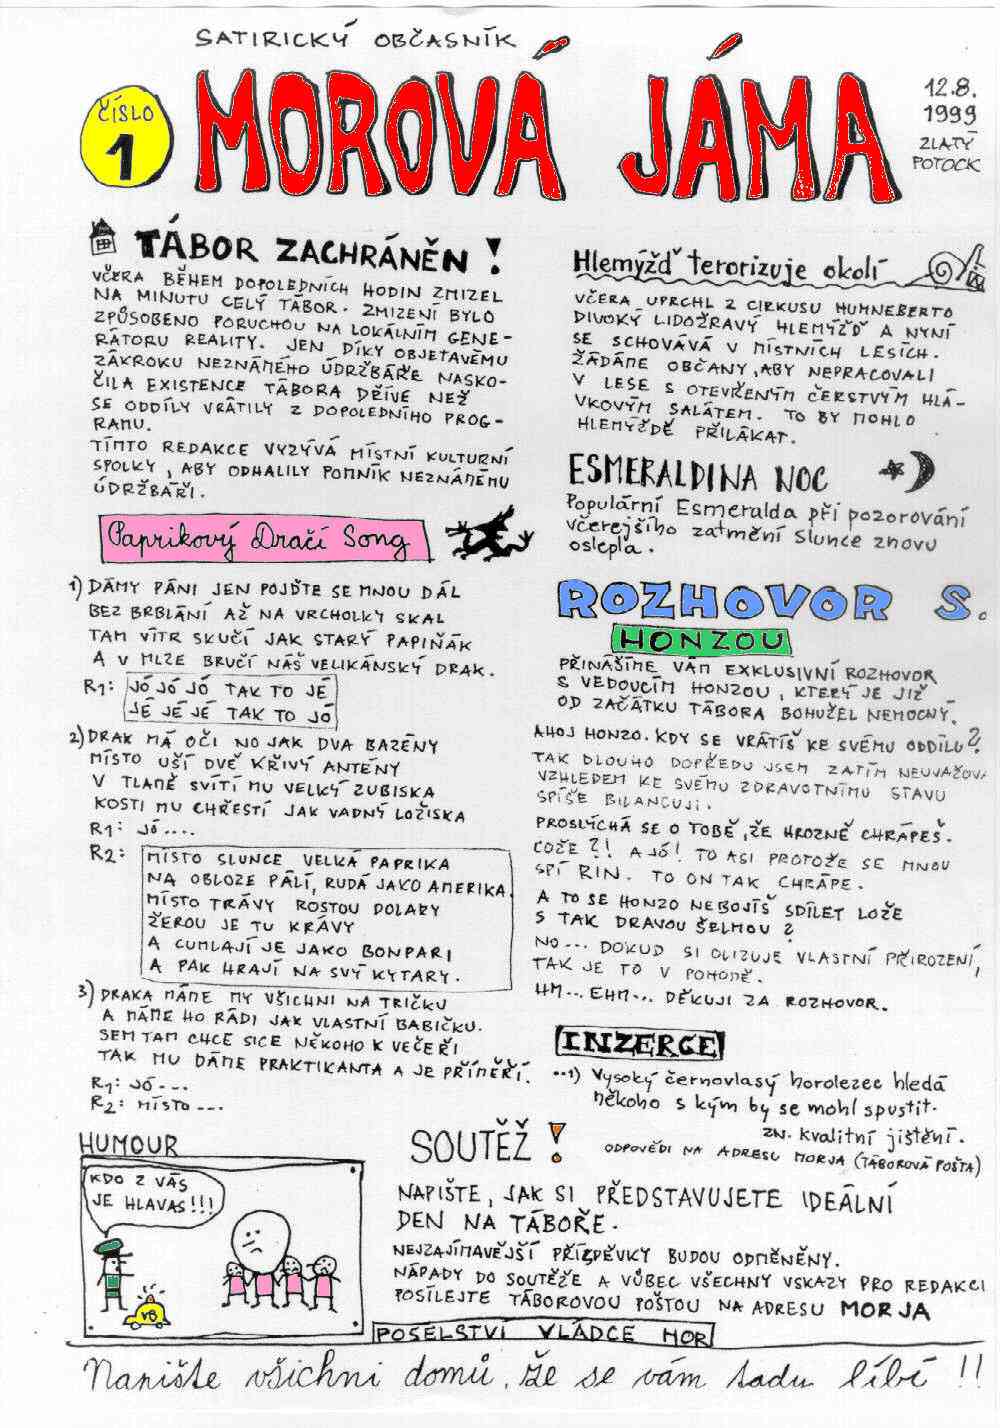 SATIRICKÝ OBČASNÍK
ČÍSLO
1
MOROVÁ JÁMA
12.8.
1999
ZLATÝ
POTOCK
TÁBOR ZACHRÁNĚN !
VČERA BĚHEM DOPOLEDNÍCH HODIN ZMIZEL
NA MINUTU CELÝ TÁBOR. ZMIZENÍ BYLO
ZPŮSOBENO PORUCHOU NA LOKÁLNÍM GENE-
RÁTORU REALITY. JEN DÍKY OBJETAVÉMU
ZÁKROKU NEZNÁMÉHO ÚDRŽBÁŘE NASKO-
ČILA EXISTENCE TÁBORA DŘÍVE NEŽ
SE ODDÍLY VRÁTILY Z DOPOLEDNÍHO PROG-
RAMU.
TÍMTO REDAKCE VYZÝVÁ MÍSTNÍ KULTURNÍ
SPOLKY, ABY ODHALILY POMNÍK NEZNÁMÉMU
ÚDRŽBÁŘI.
Paprikový Dračí Song
1) DÁMY PÁNI JEN POJĎTE SE MNOU DÁL
BEZ BRBLÁNÍ AŽ NA VRCHOLKY SKAL
TAM VÍTR SKUČÍ JAK STARÝ PAPIŇÁK
A V MLZE BRUČÍ NÁŠ VELIKÁNSKÝ DRAK.
R1: JÓ JÓ JÓ TAK TO JÉ
JÉ JÉ JÉ TAK TO JÓ
2) DRAK MÁ OČI NO JAK DVA BAZÉNY
MÍSTO UŠÍ DVĚ KŘIVÝ ANTÉNY
V TLAMĚ SVÍTÍ MU VELKÝ ZUBISKA
KOSTI MU CHŘESTÍ JAK VADNÝ LOŽISKA
R1: JÓ....
R2: MÍSTO SLUNCE VELKÁ PAPRIKA
NA OBLOZE PÁLÍ, RUDÁ JAKO AMERIKA.
MÍSTO TRÁVY ROSTOU DOLARY
ŽEROU JE TU KRÁVY
A CUMLAJÍ JE JAKO BONPARI
A PAK HRAJÍ NA SVÝ KYTARY.
3) DRAKA MÁME MY VŠICHNI NA TRIČKU
A MÁME HO RÁDI JAK VLASTNÍ BABIČKU.
SEM TAM CHCE SICE NĚKOHO K VEČEŘI
TAK MU DÁME PRAKTIKANTA A JE PŘÍMĚŘÍ.
R1: JÓ...
R2: MÍSTO...
HUMOUR
KDO Z VÁS
JE HLAVAS!!!
VB
Hlemýžď terorizuje okolí
VČERA UPRCHL Z CIRKUSU HUMNEBERTO
DIVOKÝ LIDOŽRAVÝ HLEMÝŽĎ A NYNÍ
SE SCHOVÁVÁ V MÍSTNÍCH LESÍCH.
ŽÁDÁME OBČANY, ABY NEPRACOVALI
V LESE S OTEVŘENÝM ČERSTVÝM HLÁ-
VKOVÝM SALÁTEM. TO BY MOHLO
HLEMÝŽDĚ PŘILÁKAT.
ESMERALDINA NOC
Populární Esmeralda při pozorování
včerejšího zatmění Slunce znovu
oslepla.
ROZHOVOR S.
HONZOU
PŘINÁŠÍME VÁM EXKLUSIVNÍ ROZHOVOR
S VEDOUCÍM HONZOU, KTERÝ JE JIŽ
OD ZAČÁTKU TÁBORA BOHUŽEL NEMOCNÝ.
AHOJ HONZO. KDY SE VRÁTÍŠ KE SVÉMU ODDÍLU?
TAK DLOUHO DOPŘEDU JSEM ZATÍM NEUVAŽOVA
VZHLEDEM KE SVÉMU ZDRAVOTNÍMU STAVU
SPÍŠE BILANCUJI.
PROSLÝCHÁ SE O TOBĚ, ŽE HROZNĚ CHRÁPEŠ.
COŽE?! A JÓ! TO ASI PROTOŽE SE MNOU
SPÍ RIN. TO ON TAK CHRÁPE.
A TO SE HONZO NEBOJÍŠ SDÍLET LOŽE
S TAK DRAVOU ŠELMOU?
NO... DOKUD SI OLIZUJE VLASTNÍ PŘIROZENÍ,
TAK JE TO V POHODĚ.
HM... EHM... DĚKUJI ZA ROZHOVOR.
INZERCE
..1) Vysoký černovlasý horolezec hledá
někoho s kým by se mohl spustit.
ZN. kvalitní jištění.
ODPOVĚDI NA ADRESU MORJA (TÁBOROVÁ POŠTA)
SOUTĚŽ !
NAPIŠTE, JAK SI PŘEDSTAVUJETE IDEÁLNÍ
DEN NA TÁBOŘE.
NEJZAJÍMAVĚJŠÍ PŘÍSPĚVKY BUDOU ODMĚNĚNY.
NÁPADY DO SOUTĚŽE A VŮBEC VŠECHNY VSKAZY PRO REDAKCI
POSÍLEJTE TÁBOROVOU POŠTOU NA ADRESU MORJA
POSELSTVÍ VLÁDCE HOR
Napište všichni domů, že se vám tadu líbí !!